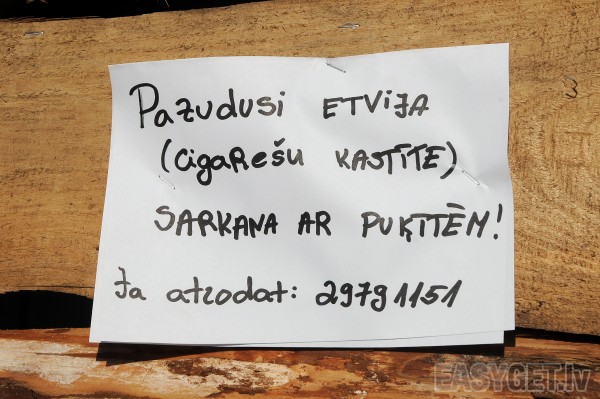 Pazudusi ETVIJA
(cigarešu KASTĪTE)
SARKANA AR PUĶĪTĒM!
Ja atrodat: 29791151
EASYGET.lv